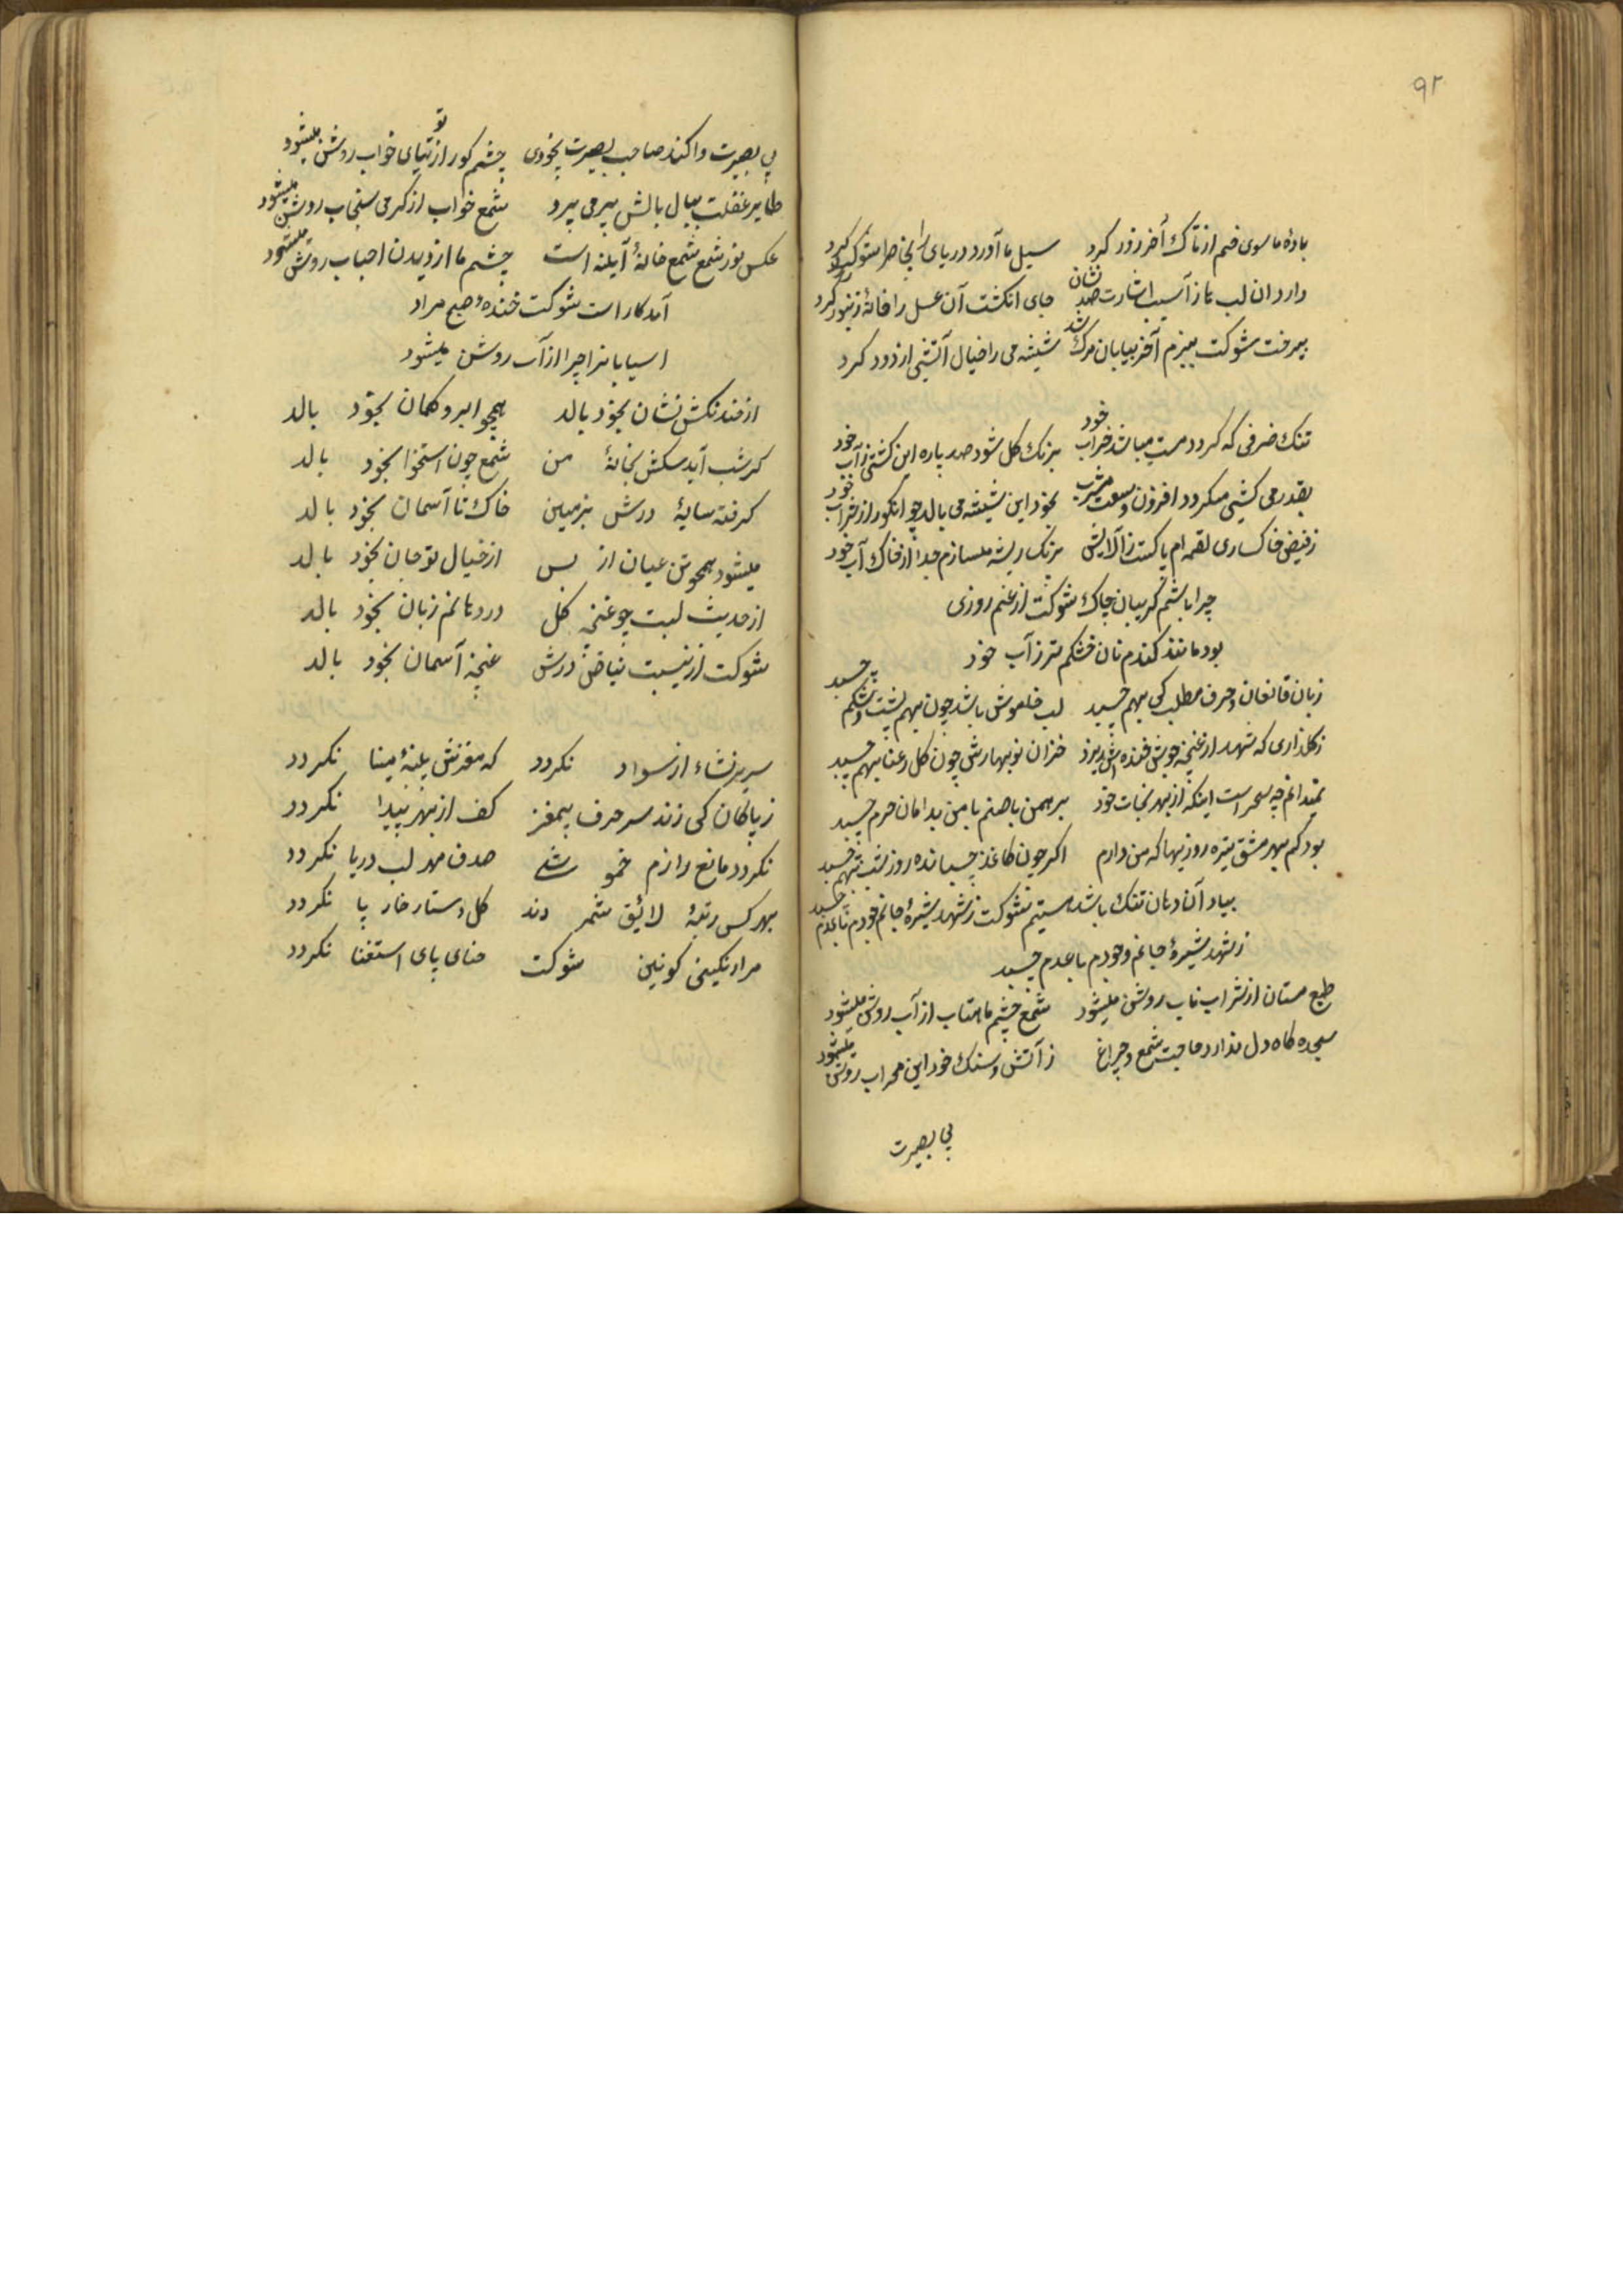 ۹۲
بادهٔ ما سوی خم از تاک آخر زور کرد سیل ما آورد دریای را بخاطر شوکت کرد
دارد ان لب باز آسیب اشارت صد نشان جای انکشت آن عسل را خانهٔ زنبور کرد
پیر رفت شوکت ببزم آخر بیابان مرک شد شیشه می را خیال آتشی از دور کرد
تنک ضرفی که کردد مست میباشد خراب خود برنک کل شود صد پاره این کشتی ز آب خود
بقدر می کشی میکردد افزون وسعت مشرب بخود این شیشه می بالد چو انکور از شراب خود
ز فیض خاکساری لقمه ام پاکست ز آلایش برنک ریشه میسازم جدا از خاک آب خود
چرا باشم کریبان چاک شوکت از غم روزی
بود مانند کندم نان خشکم تر ز آب خود
زبان قانعان و حرف مطلب کی بهم چسبد لب خاموش باشد چون بهم پشت و شکم چسبد
ز کلزاری که شهد از غنچه جوش خنده اش ریزد خزان نوبهارش چون کل رعنا بهم چسبد
نمیدانم چه سحر است اینکه از بهر نجات خود برهمن با صنم با من بدامان حرم چسبد
بود کم بهر مشق تیره روزیها که من دارم اکر چون کاغذ چسبانده روز و شب بهم چسبد
بیاد آن دهان تنک باشد هستیم شوکت ز شهد شیرهٔ جانم وجودم با عدم چسبد
ز شهد شیرهٔ جانم وجودم با عدم چسبد
طبع مستان از شراب ناب روشن میشود شمع چشم ماهتاب از آب روشن میشود
سجده کاه دل ندارد حاجت شمع و چراغ ز آتش و سنک خود این محراب روشن میشود
بی بصیرت
بی بصیرت وا کند صاحب بصیرت بیخودی چشم کور از توتیای خواب روشن میشود
طایر غفلت ببال بالش پر می پرد شمع خواب از کرمی سنجاب روشن میشود
عکس نور شمع شمع خانهٔ آینه است چشم ما از دیدن احباب روشن میشود
آمد کار است شوکت خندهٔ صبح مراد
اسیابانرا چرا از آب روشن میشود
از خدنکش نشان بخود بالد همچو ابرو کمان بخود بالد
کر شب آید سکش بخانهٔ من شمع چون استخوا بخود بالد
کرفته سایهٔ درش بزمین خاک تا آسمان بخود بالد
میشود همچو تن عیان از بس از خیال تو جان بخود بالد
از حدیث لبت چو غنچه کل در دهانم زبان بخود بالد
شوکت از نسبت بیاض درش غنچه آسمان بخود بالد
سریر نشاء از سواد نکردد که مغزش پنبهٔ مینا نکردد
ز پاکان کی زند سر حرف بیمغز کف از بهر پیدا نکردد
نکردد مانع رازم خموشی صدف مهر لب دریا نکردد
بهر کس رتبهٔ لائق شمردند کل دستار خار پا نکردد
مرا رنکینی کونین شوکت حنای پای استغنا نکردد